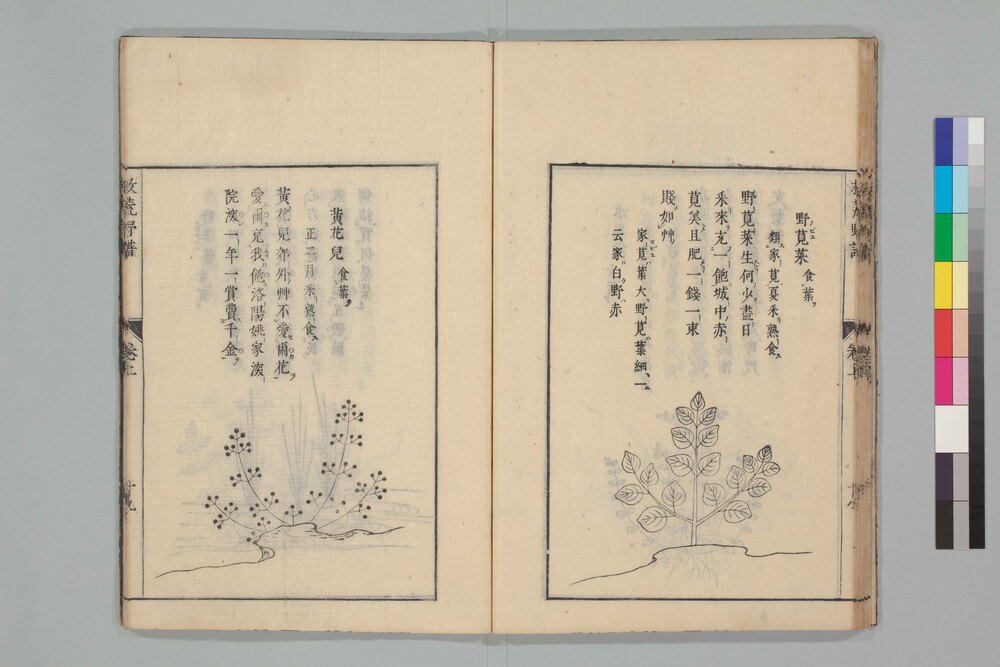 野莧菜食葉
類家莧夏采熟食
野莧菜生何少盡日
采來充一飽城中赤
莧美且肥一錢一束
賤如艸
家莧葉大野莧葉細一
云家白野赤
黃花兒食葉
正二月采熟食
黃花兒郊外艸不愛爾花
愛爾兒我飽洛陽姚家深
院深一年一賞費千金
救荒野譜
卷上
十九